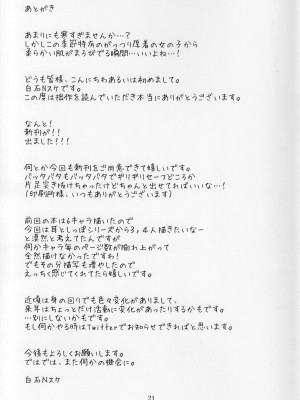 あとがき
あまりにも寒すぎませんか…?
しかしこの季節特有のがっつり厚着の女の子から
柔らかい肌がまろびでる瞬間…いいよね…!
どうも皆様、こんにちわあるいは初めまして。
白石Nスケです。
この度は拙作を読んでいただき本当にありがとうございます。
なんと!
新刊が!!
出ました!!!
何とか今回も新刊をご用意できて嬉しいです。
バッタバタもバッタバタでギリギリセーフどころか
片足突き抜けちゃったけどちゃんと出せてればいいな…!
(印刷所様、いつもありがとうございます)
前回の本は6キャラ描いたので
今回は耳としっぽシリーズから3,4人描きたいなー
と漠然と考えてたんですが
何かキャラ毎のページ数が膨れ上がって
全然描けなかったですね!
でもその分描写も増やしたので
えっちく感じてくれてたら嬉しいです。
近頃は身の回りでも色々変化がありまして、
来年はちょっとだけ活動に変化があったりするかもです。
…特にしないかもです。
もし何かやる時はTwitterでお知らせできればと思います。
今後もよろしくお願いします。
ではでは、また何かの機会に。
白石Nスケ
21